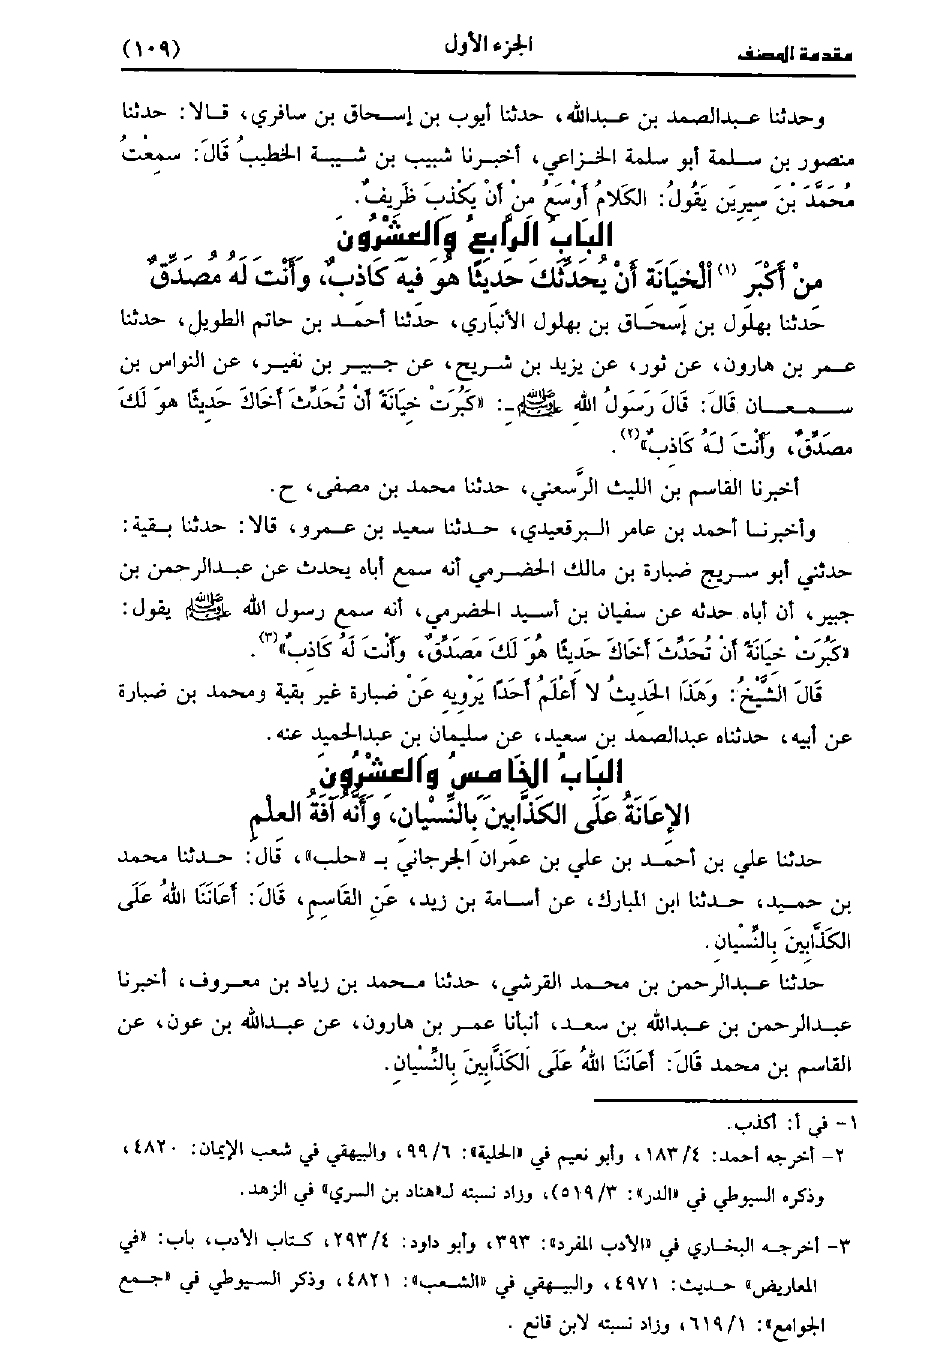 مقدمة المصنف الجزء الأول (١٠٩)
وحدثنا عبدالصمد بن عبدالله، حدثنا أيوب بن إسحاق بن سافري، قالا: حدثنا
منصور بن سلمة أبو سلمة الخزاعي، أخبرنا شبيب بن شيبة الخطيبُ قَالَ: سمعتُ
مُحَمَّدَ بْنَ سِيرِينَ يَقُولُ: الكَلامُ أَوْسَعُ مِنْ أَنْ يَكْذِبَ ظَرِيفٌ.
البَابُ الرَّابِعُ وَالعِشْرُونَ
مِنْ أَكْبَرِ (١) الْخِيَانَةِ أَنْ يُحَدِّثَكَ حَدِيثًا هُوَ فِيهِ كَاذِبٌ، وَأَنْتَ لَهُ مُصَدِّقٌ
حَدثَنا بهلول بن إسحَاق بن بهلول الأنباري، حدثنا أحمد بن حاتم الطويل، حدثنا
عمر بن هارون، عن ثور، عن يزيد بن شريح، عن جبير بن نفير، عن النواس بن
سمعان قَالَ: قَالَ رَسولُ اللهِ ﷺ: «كَبُرَتْ خِيَانَةً أَنْ تُحَدِّثَ أَخَاكَ حَدِيثًا هو لَكَ
مصَدِّقٌ، وأَنْتَ لَهُ كَاذِبٌ»(٢).
أخبرنا القاسم بن الليث الرَّسعني، حدثنا محمد بن مصفى، ح.
وأخبرنا أحمد بن عامر البرقعيدي، حدثنا سعيد بن عمرو، قالا: حدثنا بقية:
حدثني أبو سريج ضبارة بن مالك الحضرمي أنه سمع أباه يحدث عن عبدالرحمن بن
جبير، أن أباه حدثه عن سفيان بن أسيد الحضرمي، أنه سمع رسول الله ﷺ يقول:
«كَبُرَتْ خِيَانَةً أَنْ تُحَدِّثَ أَخَاكَ حَدِيثًا هُوَ لَكَ مُصَدِّقٌ، وَأَنْتَ لَهُ كَاذِبٌ»(٣).
قَالَ الشَّيْخُ: وَهَذَا الحَدِيثُ لا أَعْلَمُ أَحَدًا يَرْوِيهِ عَنْ ضبارة غير بقية ومحمد بن ضبارة
عن أبيه، حدثناه عبدالصمد بن سعيد، عن سليمان بن عبدالحميد عنه.
البَابُ الخَامِسُ وَالعِشْرُونَ
الإِعَانَةُ عَلَى الكَذَّابِينَ بَالنِّسْيَانِ، وَأَنَّهُ آفَةُ العِلْمِ
حدثنا علي بن أحمد بن علي بن عمران الجرجاني بـ «حلب»، قال: حدثنا محمد
بن حميد، حدثنا ابن المبارك، عن أسامة بن زيد، عَنِ القَاسِمِ، قَالَ: أَعَانَنَا اللهُ عَلَى
الكَذَّابِينَ بِالنِّسْيَانِ.
حدثنا عبدالرحمن بن محمد القرشي، حدثنا محمد بن زياد بن معروف، أخبرنا
عبدالرحمن بن عبدالله بن سعد، أنبأنا عمر بن هارون، عن عبدالله بن عون، عن
القاسم بن محمد قَالَ: أَعَانَنَا اللهُ عَلَى الكَذَّابِينَ بِالنِّسْيَانِ.
١- في أ: أكذب.
٢- أخرجه أحمد: ١٨٣/٤، وأبو نعيم في «الحلية»: ٩٩/٦، والبيهقي في شعب الإيمان: ٤٨٢٠،
وذكره السيوطي في «الدر»: ٥١٩/٣)، وزاد نسبته لـ«هناد بن السري» في الزهد.
٣- أخرجه البخاري في «الأدب المفرد»: ٣٩٣، وأبو داود: ٢٩٣/٤، كتاب الأدب، باب: «في
المعاريض» حديث: ٤٩٧١، والبيهقي في «الشعب»: ٤٨٢١، وذكر السيوطي في «جمع
الجوامع»: ٦١٩/١، وزاد نسبته لابن قانع .